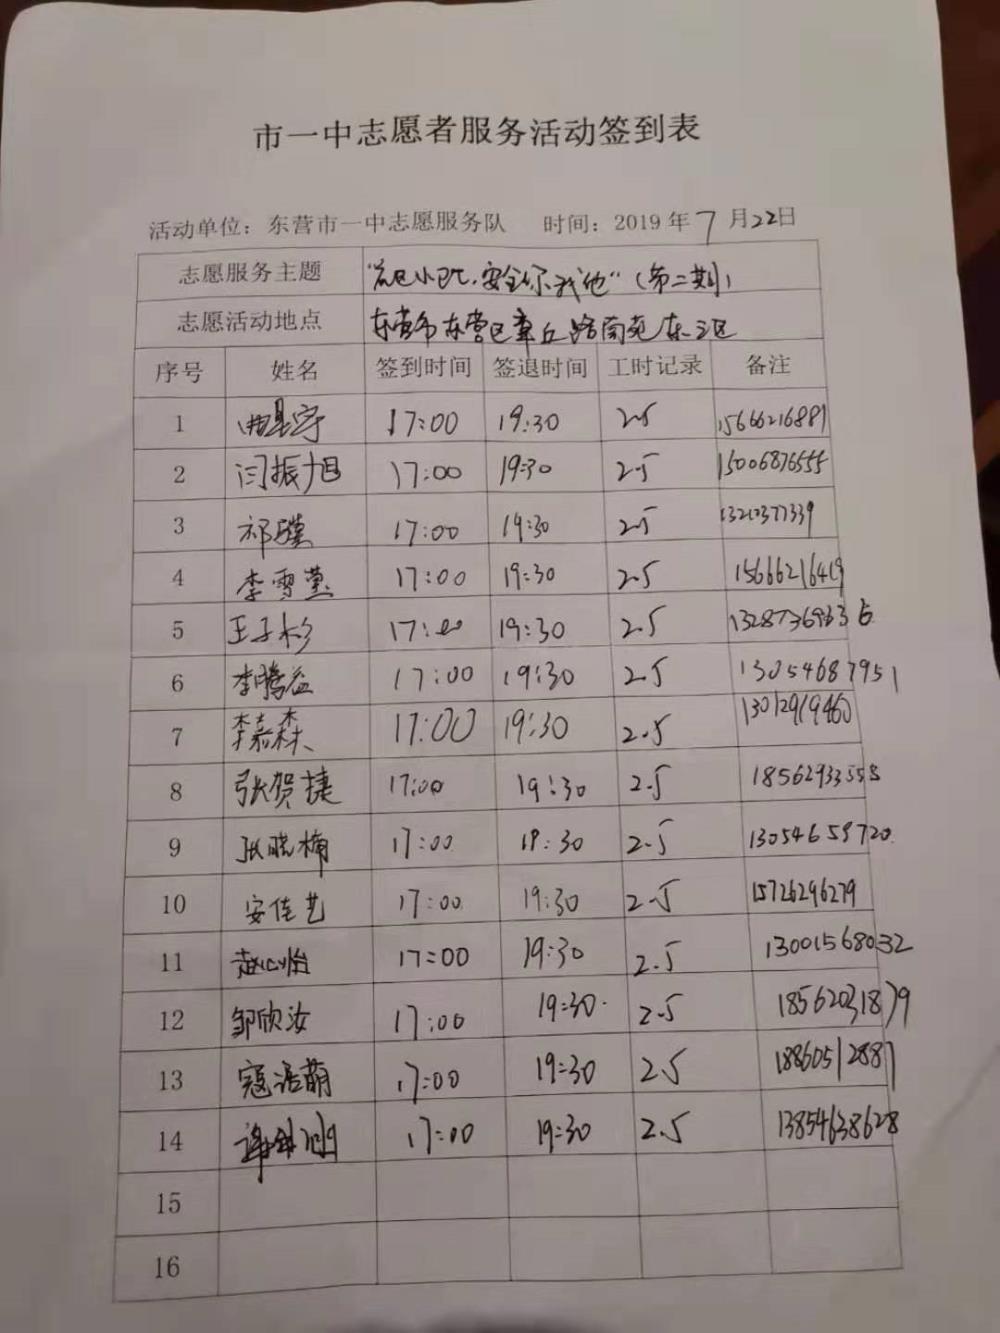 市一中志愿者服务活动签到表
活动单位：东营市一中志愿服务队 时间：2019年7月22日
志愿服务主题 安全你我他"（第二期）
志愿活动地点 东营市东营区章丘路南苑东三区
序号 姓名 签到时间 签退时间 工时记录 备注
1 17:00 19:30 2.5 15666216881
2 闫振旭 17:00 19:30 2.5 15006876555
3 祁骥 17:00 19:30 2.5 13210377339
4 李雪莹 17:00 19:30 2.5 15666216419
5 王子杉 17:00 19:30 2.5 13287369636
6 李腾益 17:00 19:30 2.5 13054687951
7 李嘉森 17:00 19:30 2.5 13012919460
8 张贺捷 17:00 19:30 2.5 18562933558
9 张晓楠 17:00 19:30 2.5 13054659720
10 安佳艺 17:00 19:30 2.5 15726296279
11 赵心怡 17:00 19:30 2.5 13001568032
12 邹欣汝 17:00 19:30 2.5 18562031879
13 寇语萌 17:00 19:30 2.5 18860512887
14 17:00 19:30 2.5 13854638628
15
16